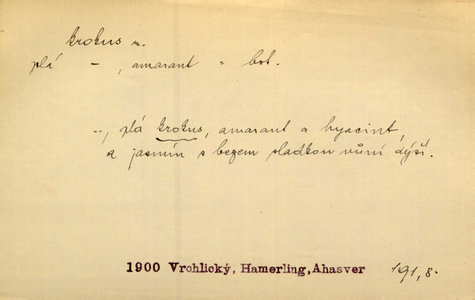 krokus m.
plá —, amarant " bot.
--, plá krokus, amarant a hyacint,
a jasmín s bezem sladkou vůní dýší.
1900 Vrchlický, Hamerling, Ahasver 191,8.